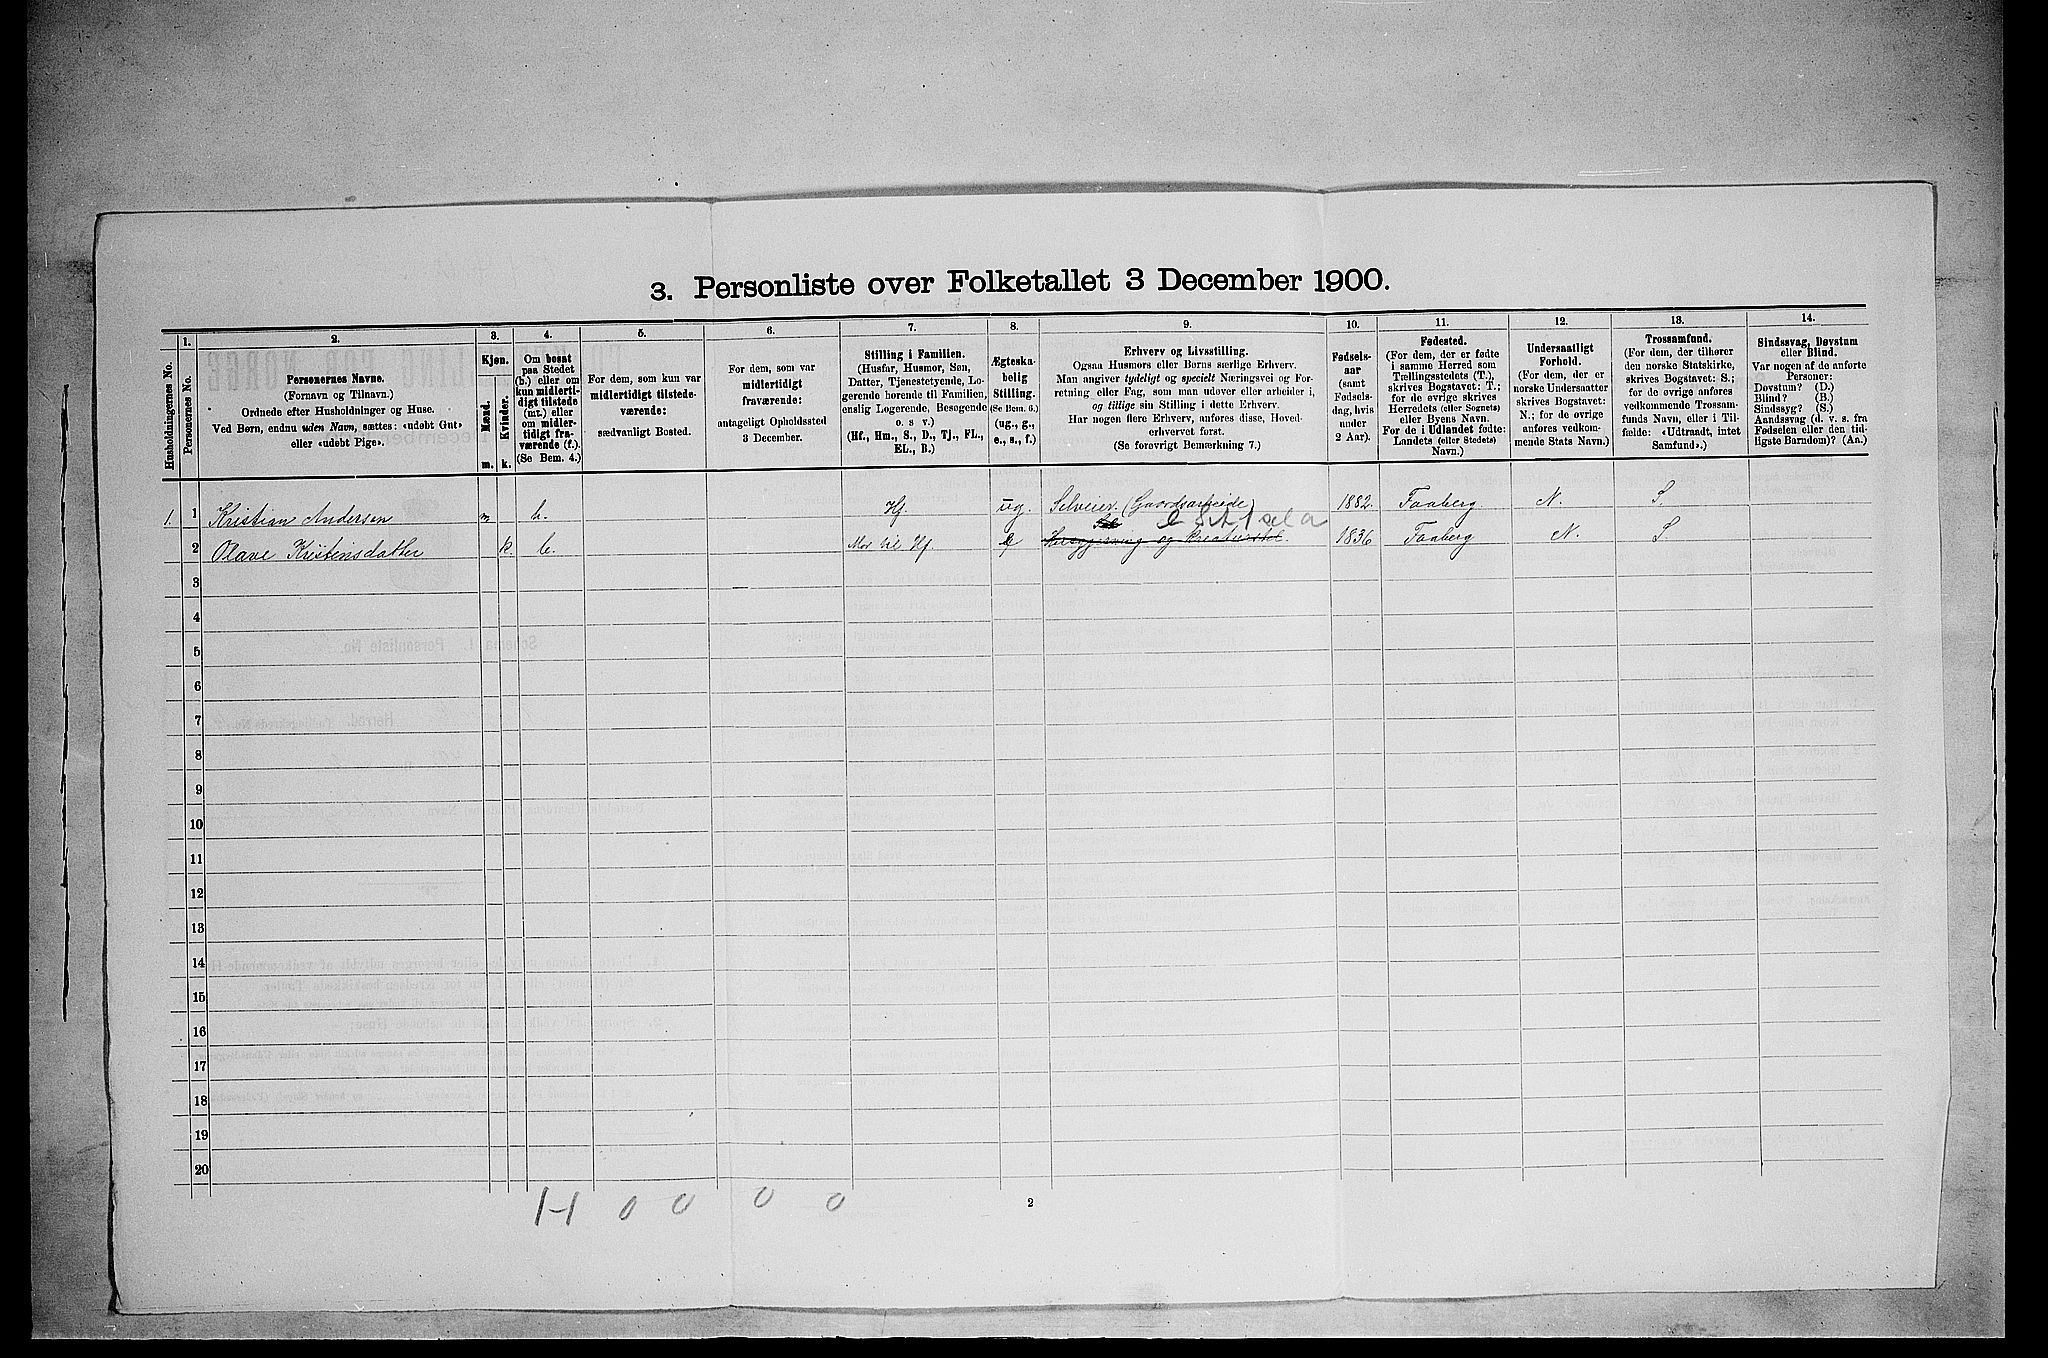 3. Personliste over Folketallet 3 December 1900.
1. 2. 3. 4. 5. 6. 7. 8. 9. 10. 11. 12. 13. 14.
Husholdningernes No.
Personernes No.
Personernes Navne.
(Fornavn og Tilnavn.)
Ordnede efter Husholdninger og Huse.
Ved Børn, endnu uden Navn, sættes: «udøbt Gut»
eller «udøbt Pige».
Kjøn.
Mænd.
Kvinder.
m. k.
Om bosat
paa Stedet
(b.) eller om
kun midlerti-
digt tilstede
(mt.) eller
om midler-
tidigt fra-
værende (f.).
(Se Bem. 4.)
For dem, som kun var
midlertidigt tilstede-
værende:
sædvanligt Bosted.
For dem, som var
midlertidigt
fraværende:
antageligt Opholdssted
3 December.
Stilling i Familien.
(Husfar, Husmor, Søn,
Datter, Tjenestetyende, Lo-
gerende hørende til Familien,
enslig Logerende, Besøgende
o. s v.)
(Hf., Hm., S., D., Tj., FL.,
EL., B.)
Ægteska-
belig
Stilling.
(Se Bem. 6.)
(ug., g.,
e., s., f.)
Erhverv og Livsstilling.
Ogsaa Husmors eller Børns særlige Erhverv.
Man angiver tydeligt og specielt Næringsvei og For-
retning eller Fag, som man udøver eller arbeider i,
og tillige sin Stilling i dette Erhverv.
Har nogen flere Erhverv, anføres disse, Hoved-
erhvervet først.
(Se forøvrigt Bemærkning 7.)
Fødsels-
aar
(samt
Fødsels-
dag, hvis
under
2 Aar).
Fødested.
(For dem, der er fødte
i samme Herred som
Tællingsstedets (T.),
skrives Bogstavet: T.;
for de øvrige skrives
Herredets (eller Sognets)
eller Byens Navn.
For de i Udlandet fødte:
Landets (eller Stedets)
Navn.)
Undersaatligt
Forhold.
(For dem, der er
norske Undersaatter
skrives Bogstavet:
N.; for de øvrige
anføres vedkom-
mende Stats Navn.)
Trossamfund.
(For dem, der tilhører
den norske Statskirke,
skrives Bogstavet: S.;
for de øvrige anføres
vedkommende Trossam-
funds Navn, eller i Til-
fælde: «Udtraadt, intet
Samfund».)
Sindssvag, Døvstum
eller Blind.
Var nogen af de anførte
Personer:
Døvstum? (D.)
Blind? (B.)
Sindssyg? (S.)
Aandssvag (d. v. s. fra
Fødselen eller den tid-
ligste Barndom)? (Aa.)
1. 1 Kristian Andersen m b. Hf. ug. Selveier (Gaardsarbeide) 1882. Faaberg N. S.
2 Olave Kristensdatter k. b. Mor til Hf. e Husgjerning og Kreaturstel. 1836 Faaberg N. S
3
4
5
6
7
8
9
10
11
12
13
14
15
16
17
18
19
20
H 0 0 0 0
2